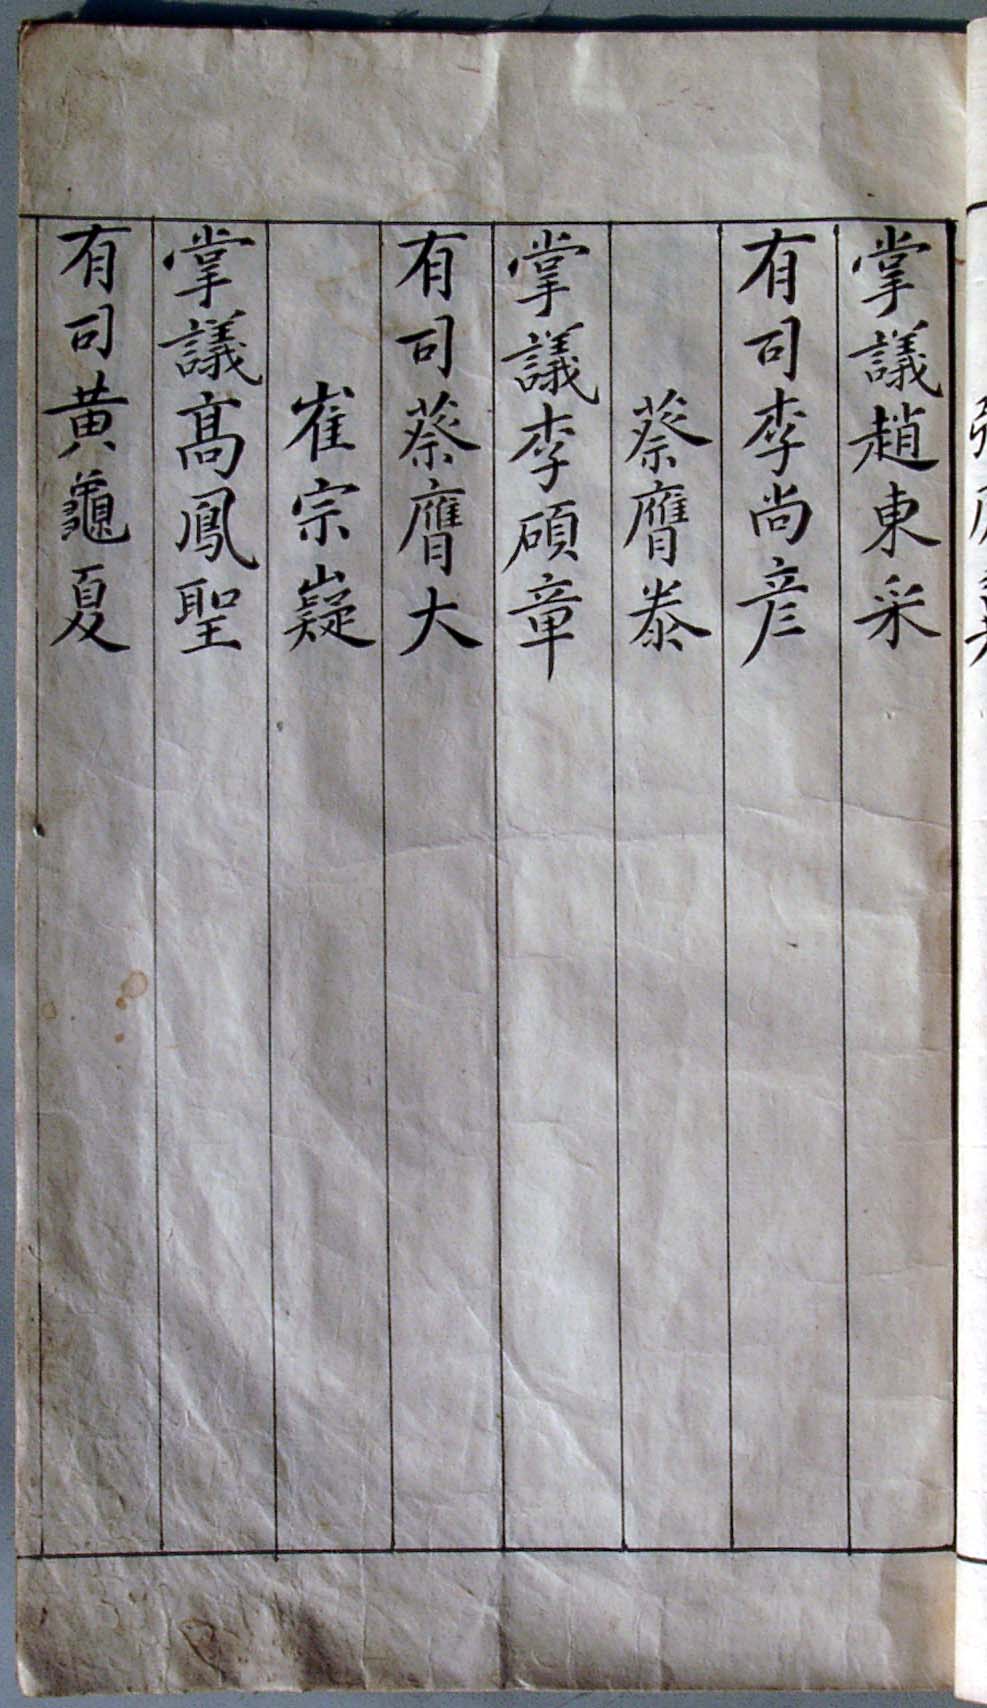 掌議趙東采
有司李尚彦
蔡膺泰
掌議李碩章
有司蔡膺大
崔宗嶷
掌議髙鳳聖
有司黄龜夏